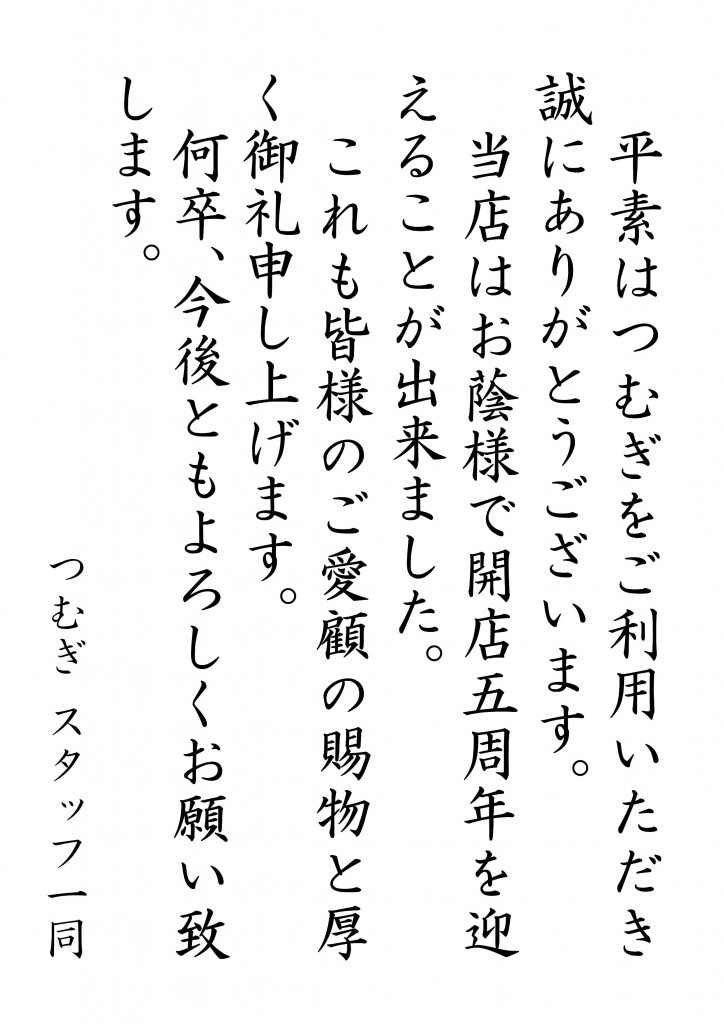 平素はつむぎをご利用いただき
誠にありがとうございます。
当店はお蔭様で開店五周年を迎
えることが出来ました。
これも皆様のご愛顧の賜物と厚
く御礼申し上げます。
何卒、今後ともよろしくお願い致
します。
つむぎ スタッフ一同